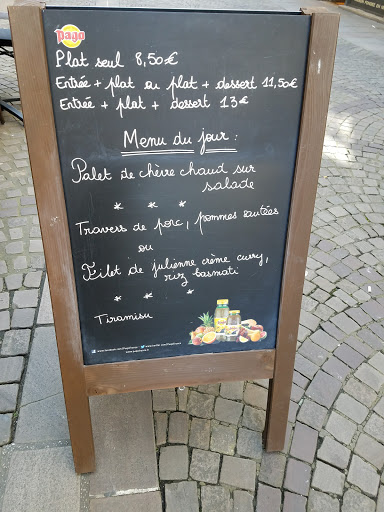 pago
Plat seul 8,50€
Entrée + plat ou plat + dessert 11,50€
Entrée + plat + dessert 13€
Menu du jour :
Palet de chèvre chaud sur
salade
* * *
Travers de porc, pommes sautées
ou
Filet de julienne crème curry,
riz basmati
* * *
Tiramisu